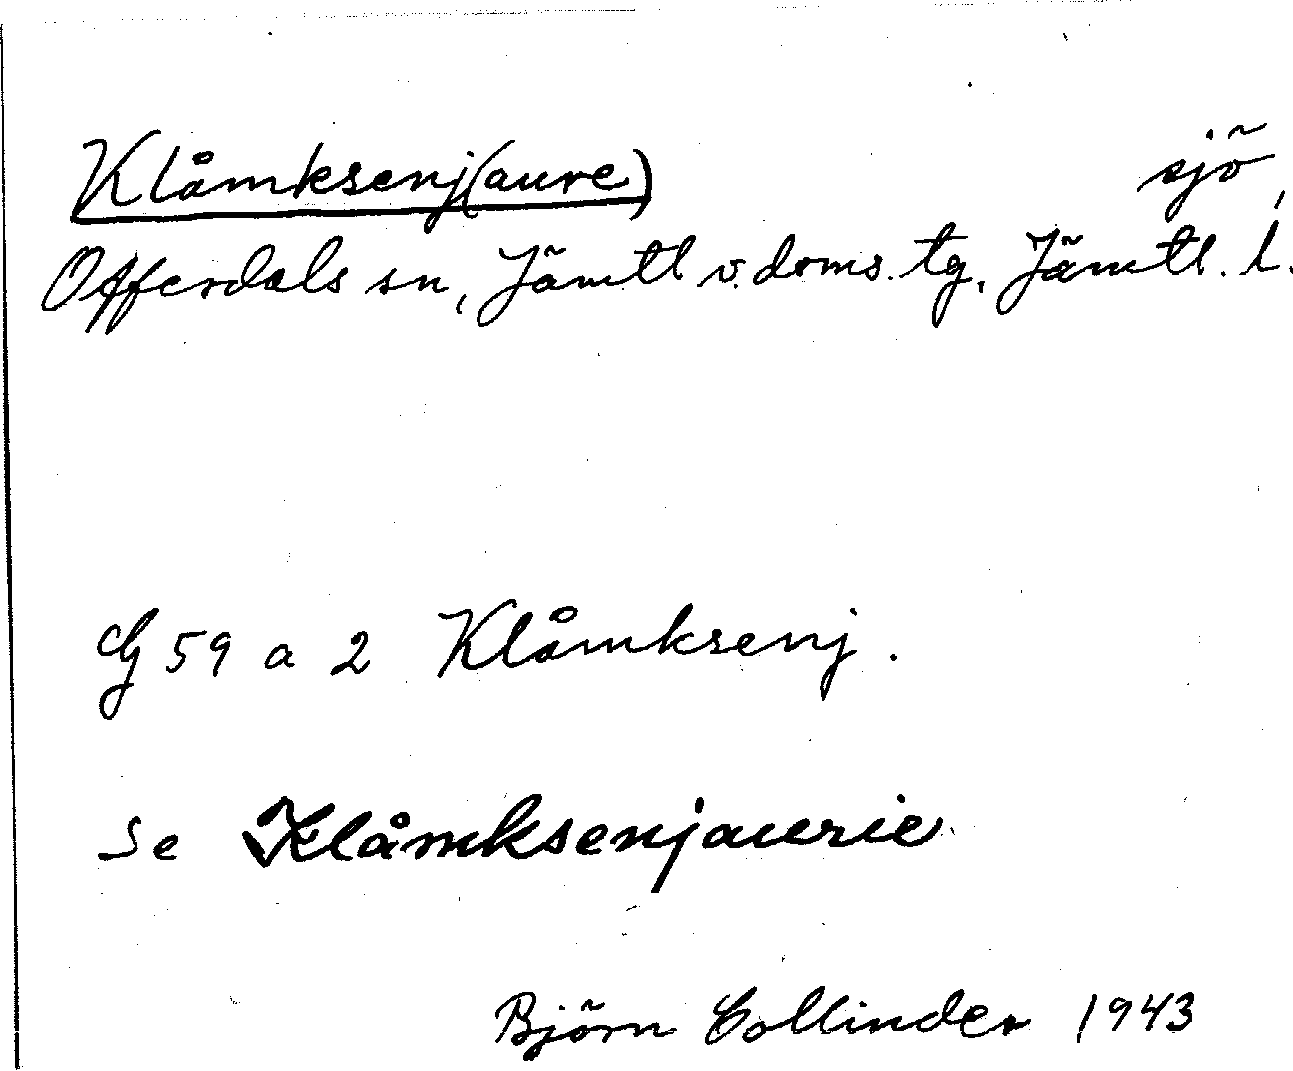 Klåmksenj(aure) sjö,
Offerdals sn, Jämtl v. doms. tg, Jämtl. l.
G 59 a 2 Klåmksenj.
Se Klåmksenjaurie
Björn Collinder 1943